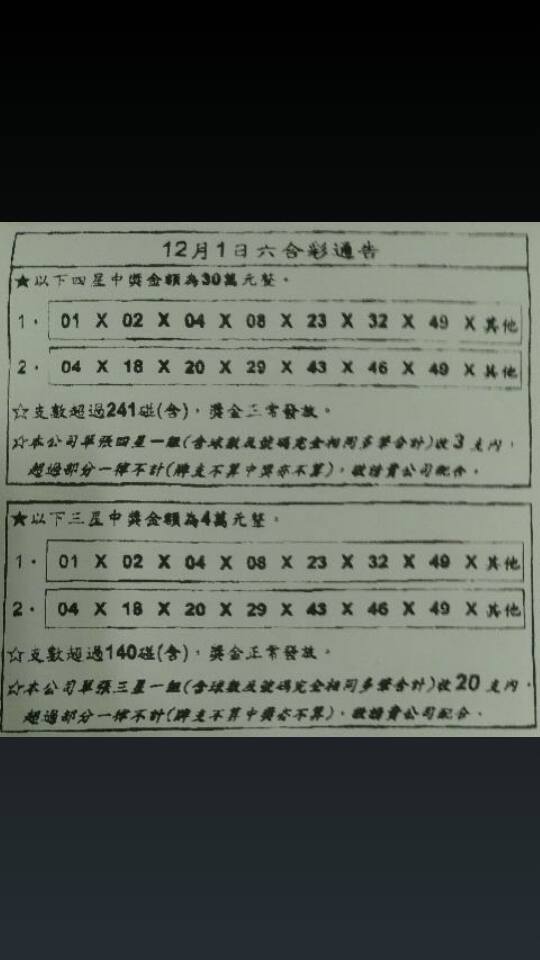 12月1日六合彩通告
★以下四星中獎金額為30萬元整。
1. 01 X 02 X 04 X 08 X 23 X 32 X 49 X 其他
2. 04 X 18 X 20 X 29 X 43 X 46 X 49 X 其他
☆支數超過241碰(含)，獎金正常發放。
☆本公司單張四星一組(含球數及號碼完全相同多筆合計)收3支內，
超過部分一律不計(牌支不算中獎亦不算)，敬請貴公司配合。
★以下三星中獎金額為4萬元整。
1. 01 X 02 X 04 X 08 X 23 X 32 X 49 X 其他
2. 04 X 18 X 20 X 29 X 43 X 46 X 49 X 其他
☆支數超過140碰(含)，獎金正常發放。
☆本公司單張三星一組(含球數及號碼完全相同多筆合計)收20支內，
超過部分一律不計(牌支不算中獎亦不算)，敬請貴公司配合。